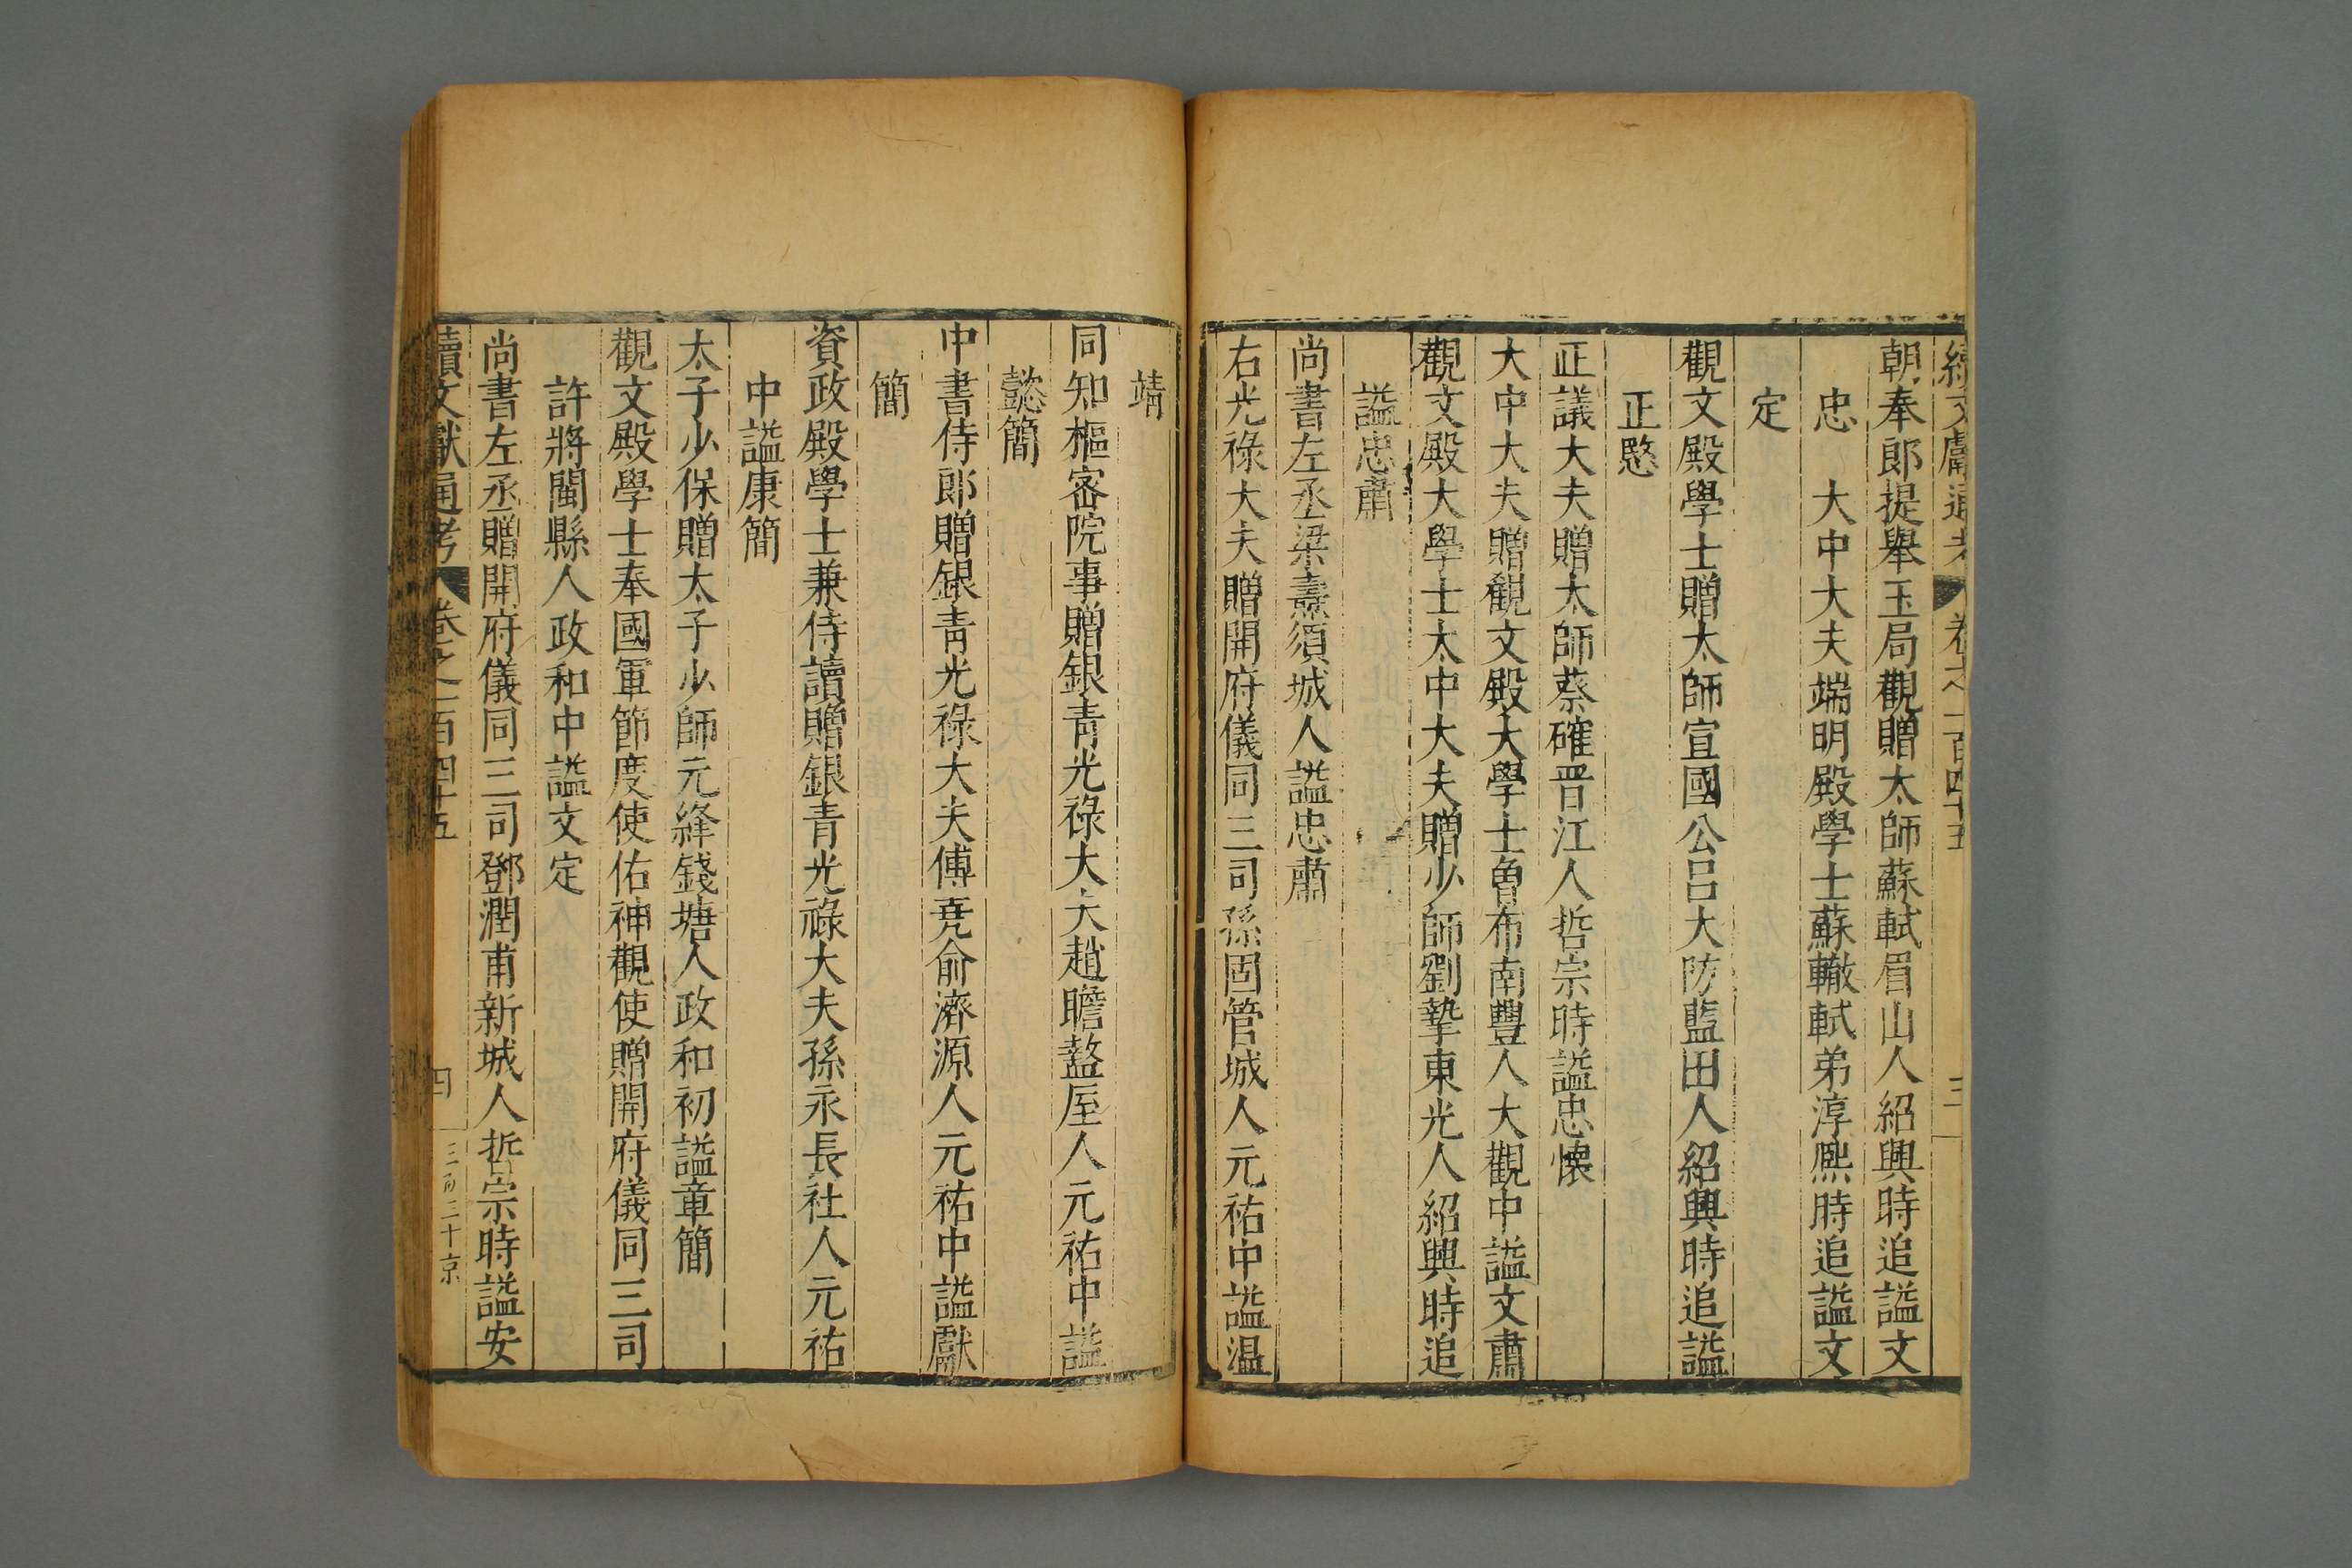 續文獻通考 卷之一百四十五 三
朝奉郎提舉玉局觀贈太師蘇軾眉山人紹興時追謚文
忠 大中大夫端明殿學士蘇轍軾弟淳熈時追謚文
定
觀文殿學士贈太師宣國公呂大防藍田人紹興時追謚
正愍
正議大夫贈太師蔡確晋江人哲宗時謚忠懷
大中大夫贈觀文殿大學士曾布南豐人大觀中謚文肅
觀文殿大學士太中大夫贈少師劉摯東光人紹興時追
謚忠肅
尚書左丞梁燾須城人謚忠肅
右光祿大夫贈開府儀同三司孫固管城人元祐中謚温
靖
同知樞密院事贈銀青光祿大夫趙瞻盩厔人元祐中謚
懿簡
中書侍郎贈銀青光祿大夫傅堯俞濟源人元祐中謚獻
簡
資政殿學士兼侍讀贈銀青光祿大夫孫永長社人元祐
中謚康簡
太子少保贈太子少師元絳錢塘人政和初謚章簡
觀文殿學士奉國軍節度使佑神觀使贈開府儀同三司
許將閩縣人政和中謚文定
尚書左丞贈開府儀同三司鄧潤甫新城人哲宗時謚安
續文獻通考 卷之一百四十五 四 三百三十京